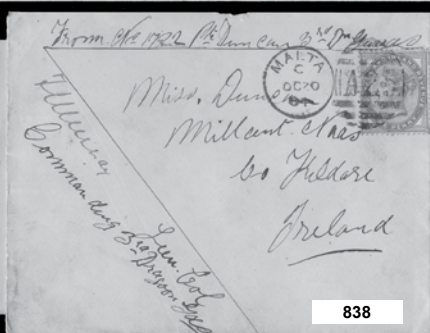 From No 1722 Pt Duncan 3rd Dn Guards
MALTA
C
OC 20
Miss. Duncan
Millicent. Naas
Co Kildare
Ireland
Lieu. Col
Commanding 3rd Dragoon Gds
838